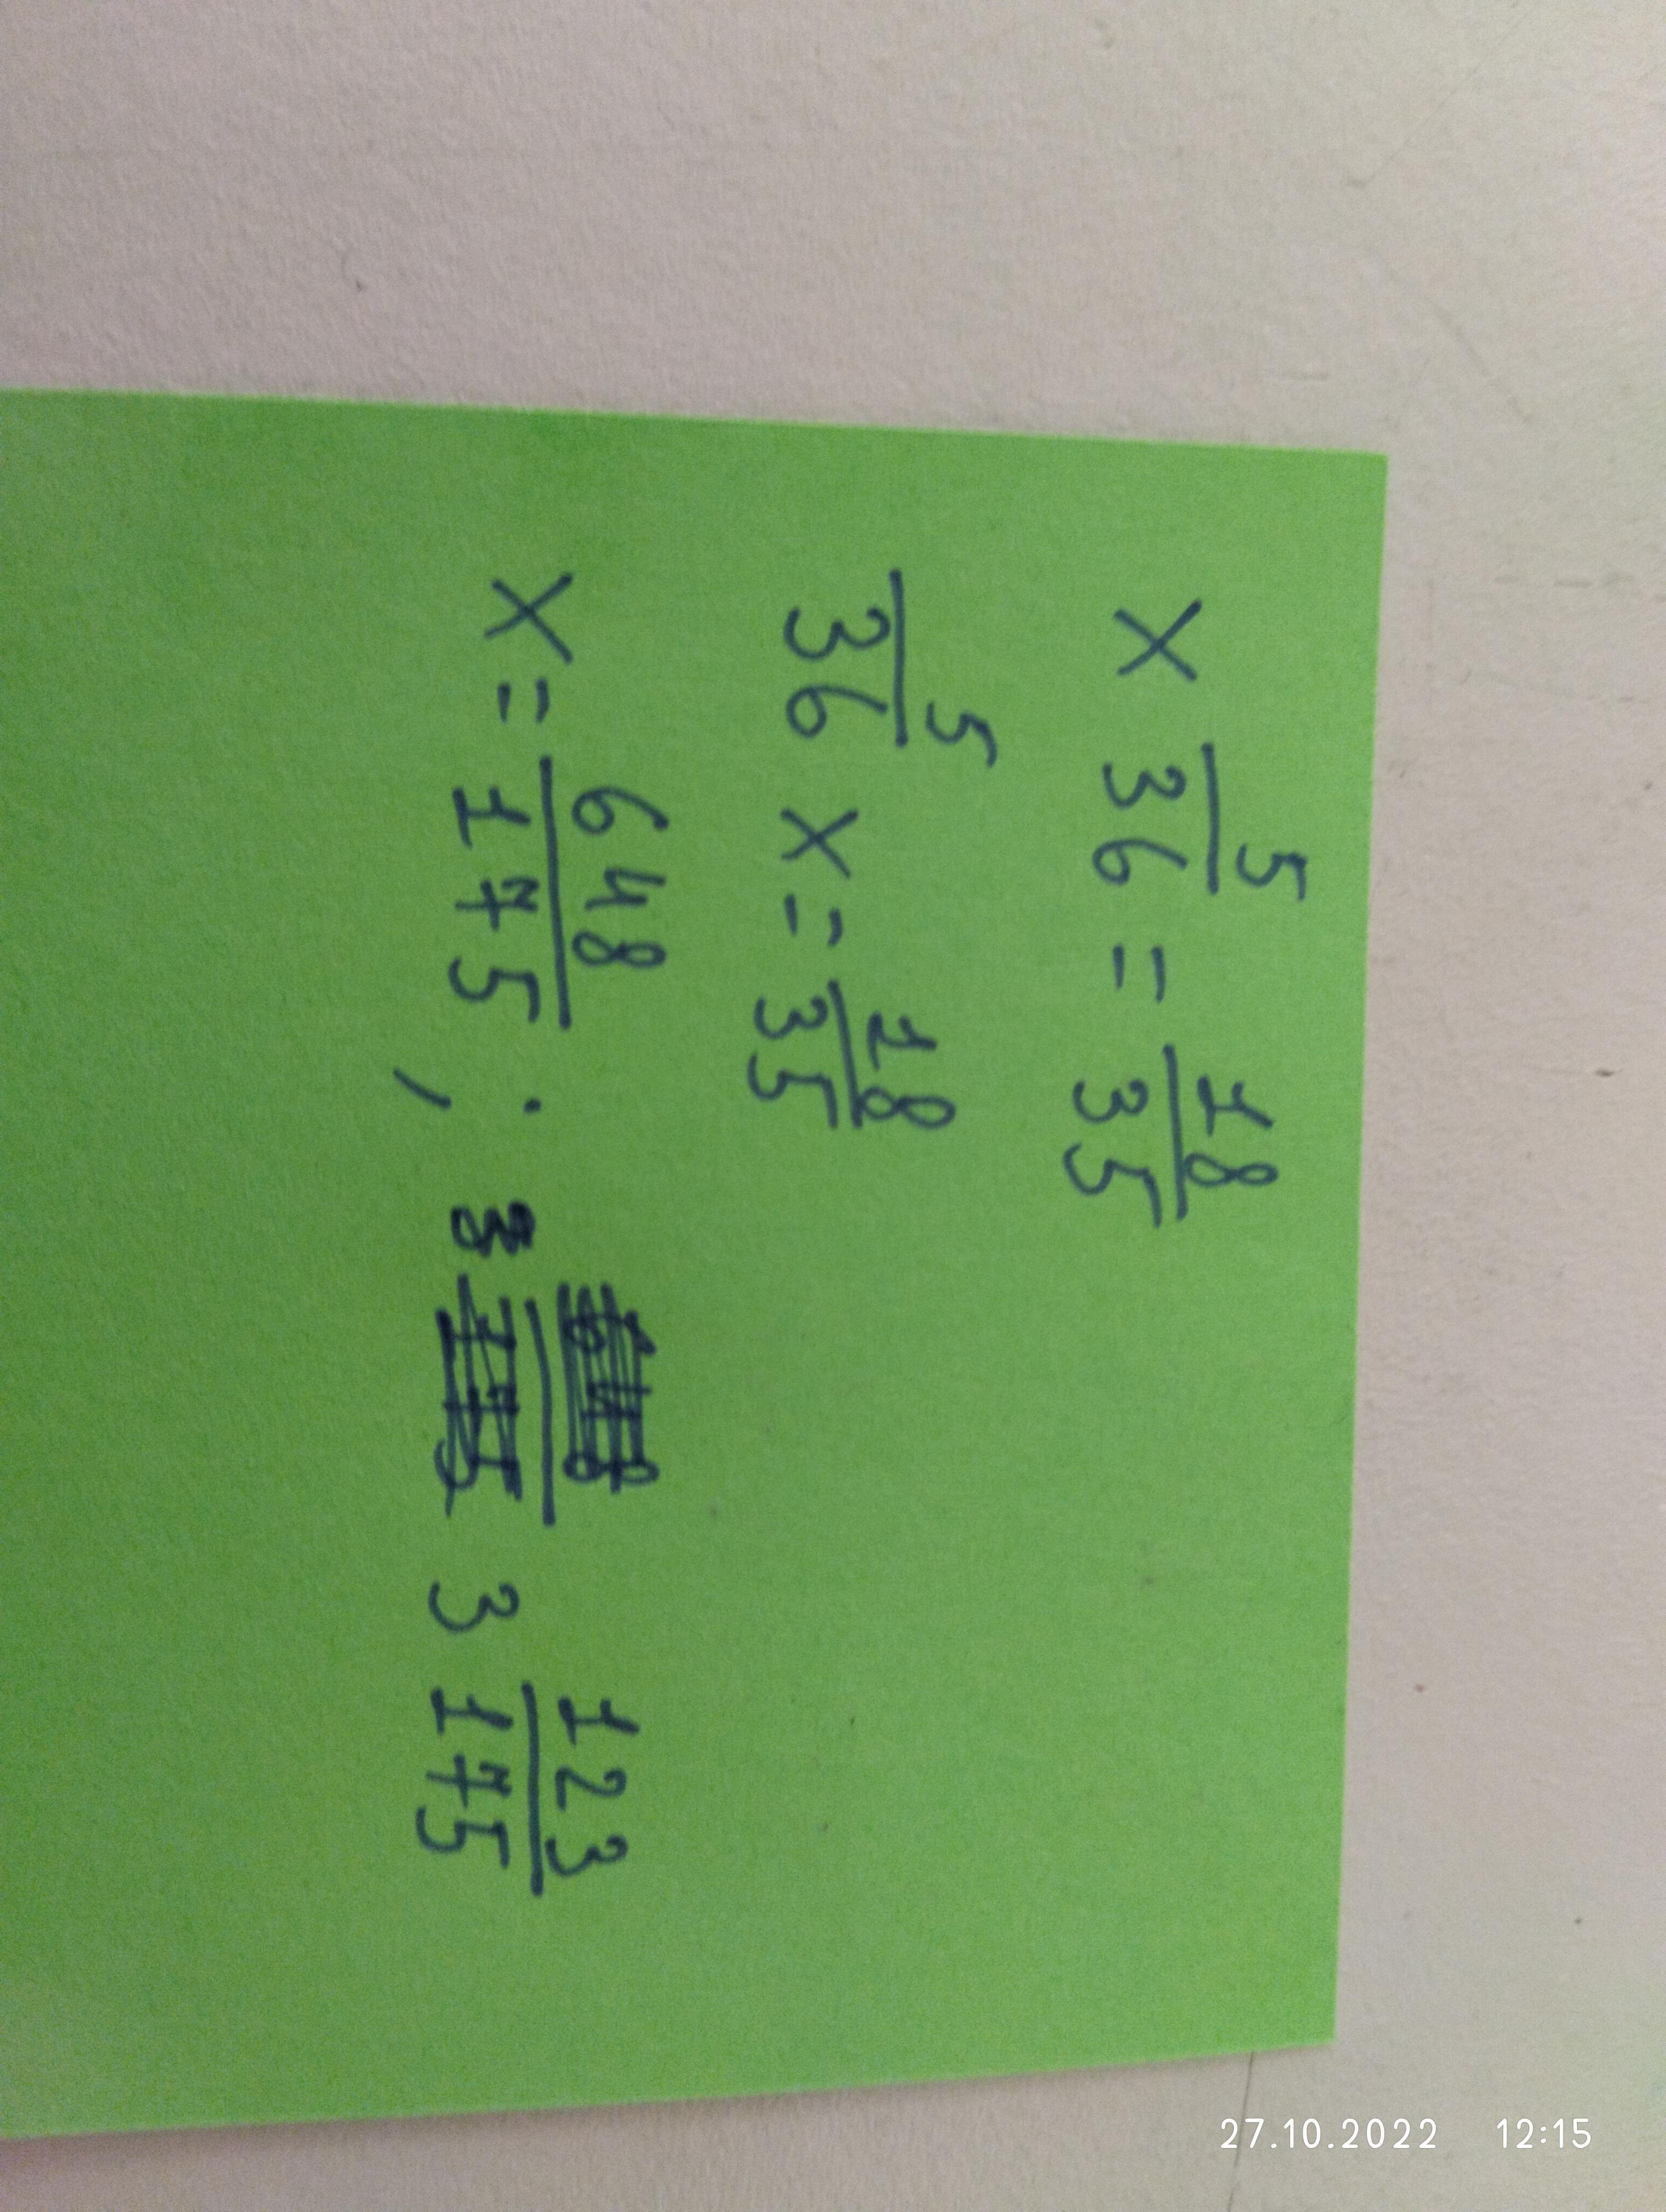 x 5/36 = 18/35
5/36 x = 18/35
x = 648/175 ; 3 123/175
27.10.2022 12:15